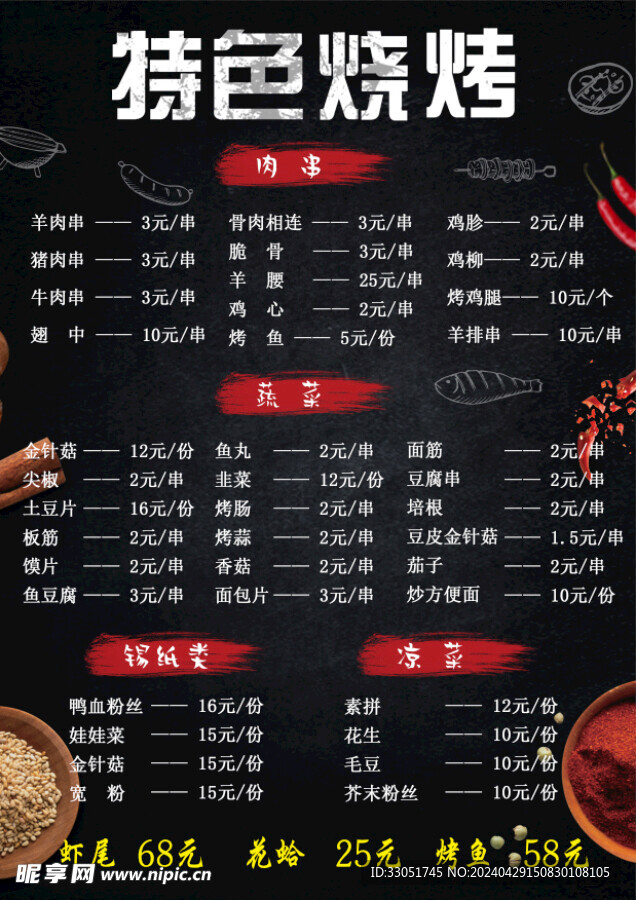 特色烧烤
肉串
羊肉串 —— 3元/串
猪肉串 —— 3元/串
牛肉串 —— 3元/串
翅 中 —— 10元/串
骨肉相连 —— 3元/串
脆 骨 —— 3元/串
羊 腰 —— 25元/串
鸡 心 —— 2元/串
烤 鱼 —— 5元/份
鸡胗—— 2元/串
鸡柳——2元/串
烤鸡腿—— 10元/个
羊排串 —— 10元/串
蔬菜
金针菇 —— 12元/份
尖椒 —— 2元/串
土豆片 —— 16元/份
板筋 —— 2元/串
馍片 —— 2元/串
鱼豆腐 —— 3元/串
鱼丸 —— 2元/串
韭菜 —— 12元/份
烤肠 —— 2元/串
烤蒜 —— 2元/串
香菇 —— 2元/串
面包片—— 3元/串
面筋 —— 2元/串
豆腐串 —— 2元/串
培根 —— 2元/串
豆皮金针菇 —— 1.5元/串
茄子 —— 2元/串
炒方便面 —— 10元/份
锡纸类
鸭血粉丝 —— 16元/份
娃娃菜 —— 15元/份
金针菇 —— 15元/份
宽 粉 —— 15元/份
凉菜
素拼 —— 12元/份
花生 —— 10元/份
毛豆 —— 10元/份
芥末粉丝 —— 10元/份
虾尾 68元 花蛤 25元 烤鱼 58元
昵享网 www.nipic.cn
ID:33051745 NO:20240429150830108105